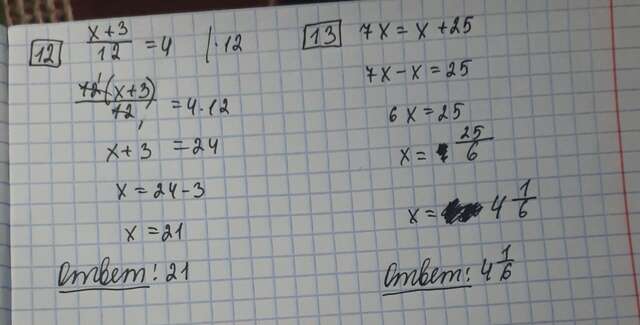 12 (x+3)/12 = 4 | · 12
12(x+3)/12 = 4·12
x+3 = 24
x = 24-3
x = 21
Ответ: 21
13 7x = x+25
7x-x = 25
6x = 25
x = 25/6
x = 4 1/6
Ответ: 4 1/6